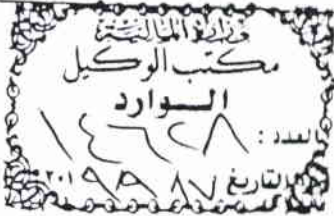 وزارة المالية
مكتب الوكيل
السوارد
العدد : ١٤٦٢٨
التاريخ ٢٠١